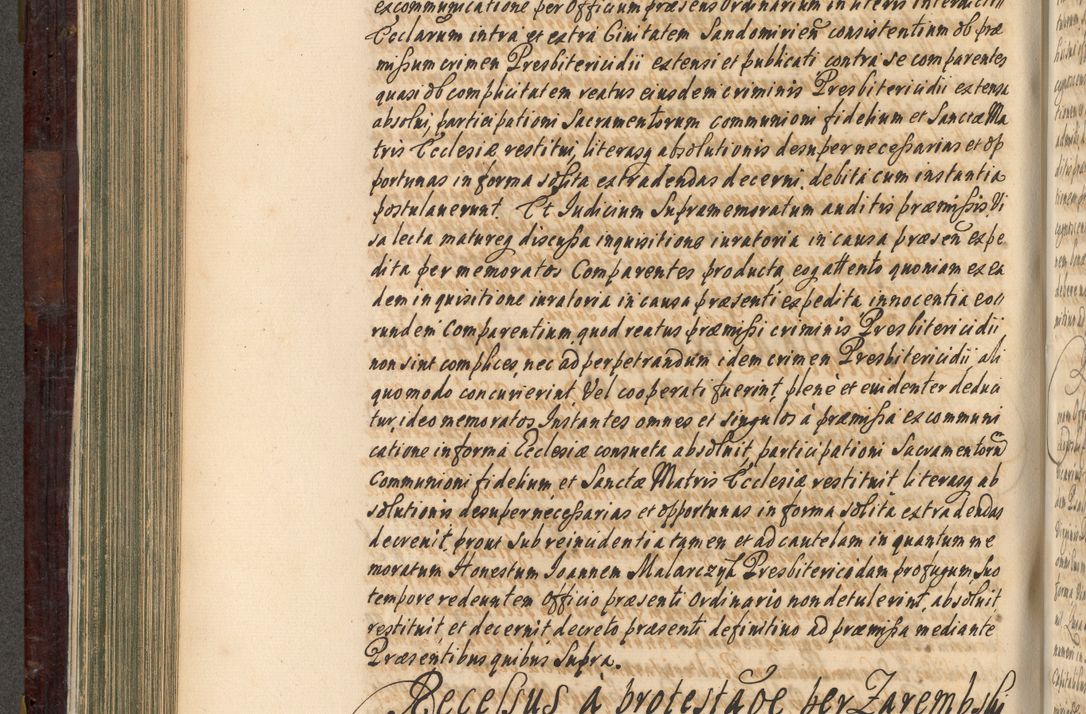 excommunicatione per Officium præsens Ordinarium in literis Interdicti
Ecclarum intra et extra Ciuitatem Sandomirień consistentium ob præ
mißum crimen Presbitericidii extensi et publicati contra se comparentes
quasi ob complicitatem reatus eiusdem criminis Presbitericidii extensa
absolui, participationi Sacramentorum communioni fidelium et Sanctæ Ma
tris Ecclesiæ restitui, literasq absolutionis desuper neceßarias et op
portunas in forma solita extradendas decerni, debita cum instantia
postulauerunt. Et Iudicium Supramemoratum auditis præmißis Vi
sa lecta matureq discußa inquisitione iuratoria in causa præsen̄ expe
dita per memoratos Comparentes producta eoq attento quoniam ex ea
dem inquisitione iuratoria in causa præsenti expedita innocentia eo
rundem Comparentium, quod reatus præmißi criminis Presbitericidii
non sint complices, nec ad perpetrandum idem crimen Presbitericidii ali
quomodo concurierint Vel cooperati fuerint, plene et euidenter deduci
tur, ideo memoratos Instantes omnes et singulos à præmißa excommuni
catione in forma Ecclesiæ consueta absoluit, participationi Sacramentorū
Communioni fidelium et Sanctæ Matris Ecclesiæ restituit literasq ab
solutionis desuper neceßarias et opportunas in forma solita extradendas
decreuit, prout sub reincidentia tamen et ad cautelam in quantum me
moratum Honestum Ioannem Malarczyk Presbitericidam profugum, suo
tempore redeuntem Officio præsenti Ordinario non detulerint, absoluit,
restituit et decernit decreto præsenti definitiuo ad præmißa mediante
Præsentibus quibus Supra.
Recessus à protestãoe per Zarembski